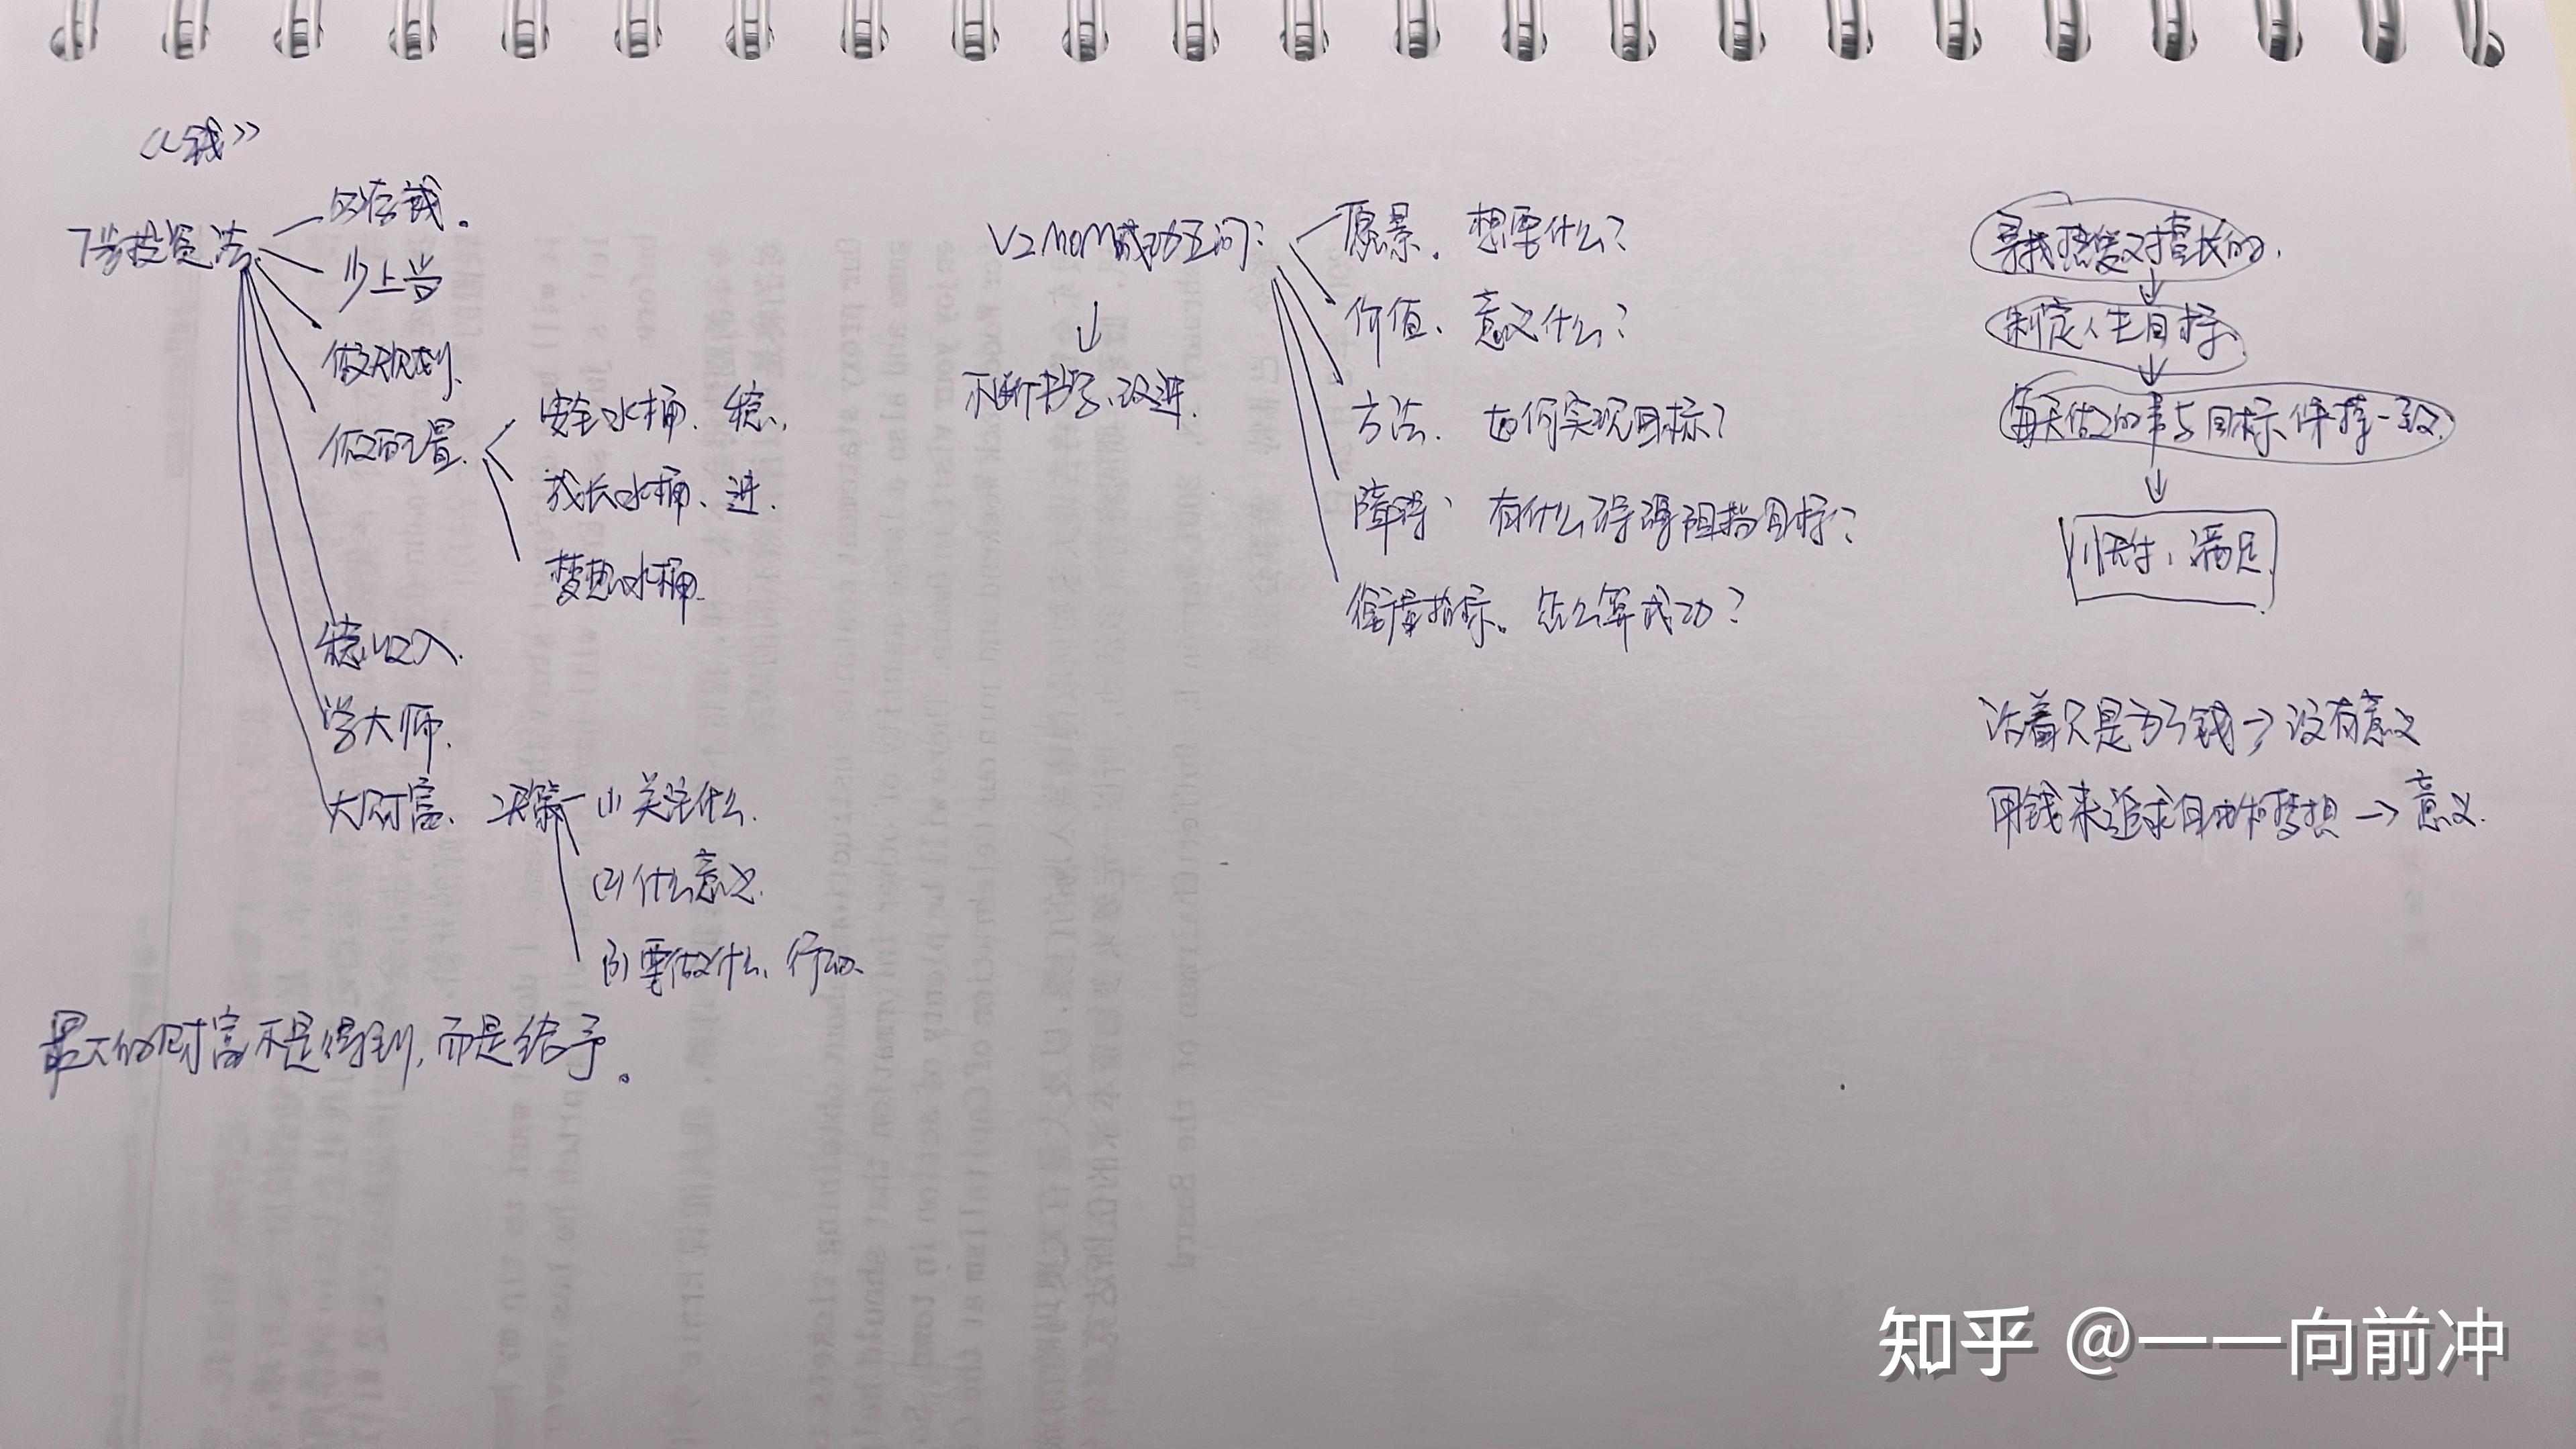 《钱》
7步投资法
存钱。
少上当
做规划.
做配置.
安全水桶、稳.
成长水桶、进.
梦想水桶.
稳收入.
学大师.
大财富. 决策
(1) 关注什么.
(2) 什么意义.
(3) 要做什么、行动.
最大的财富不是得到,而是给予。
V2MOM成功五问:
不断书写、改进.
愿景. 想要什么?
价值、意义什么?
方法. 如何实现目标?
障碍、 有什么碍阻挡目标?
衡量指标。怎么算成功?
寻找热爱又擅长的.
制定人生目标.
每天做的事与目标保持一致.
快乐、满足.
活着只是为了钱→没有意义
用钱来追求自由和梦想→意义.
知乎 @一一向前冲